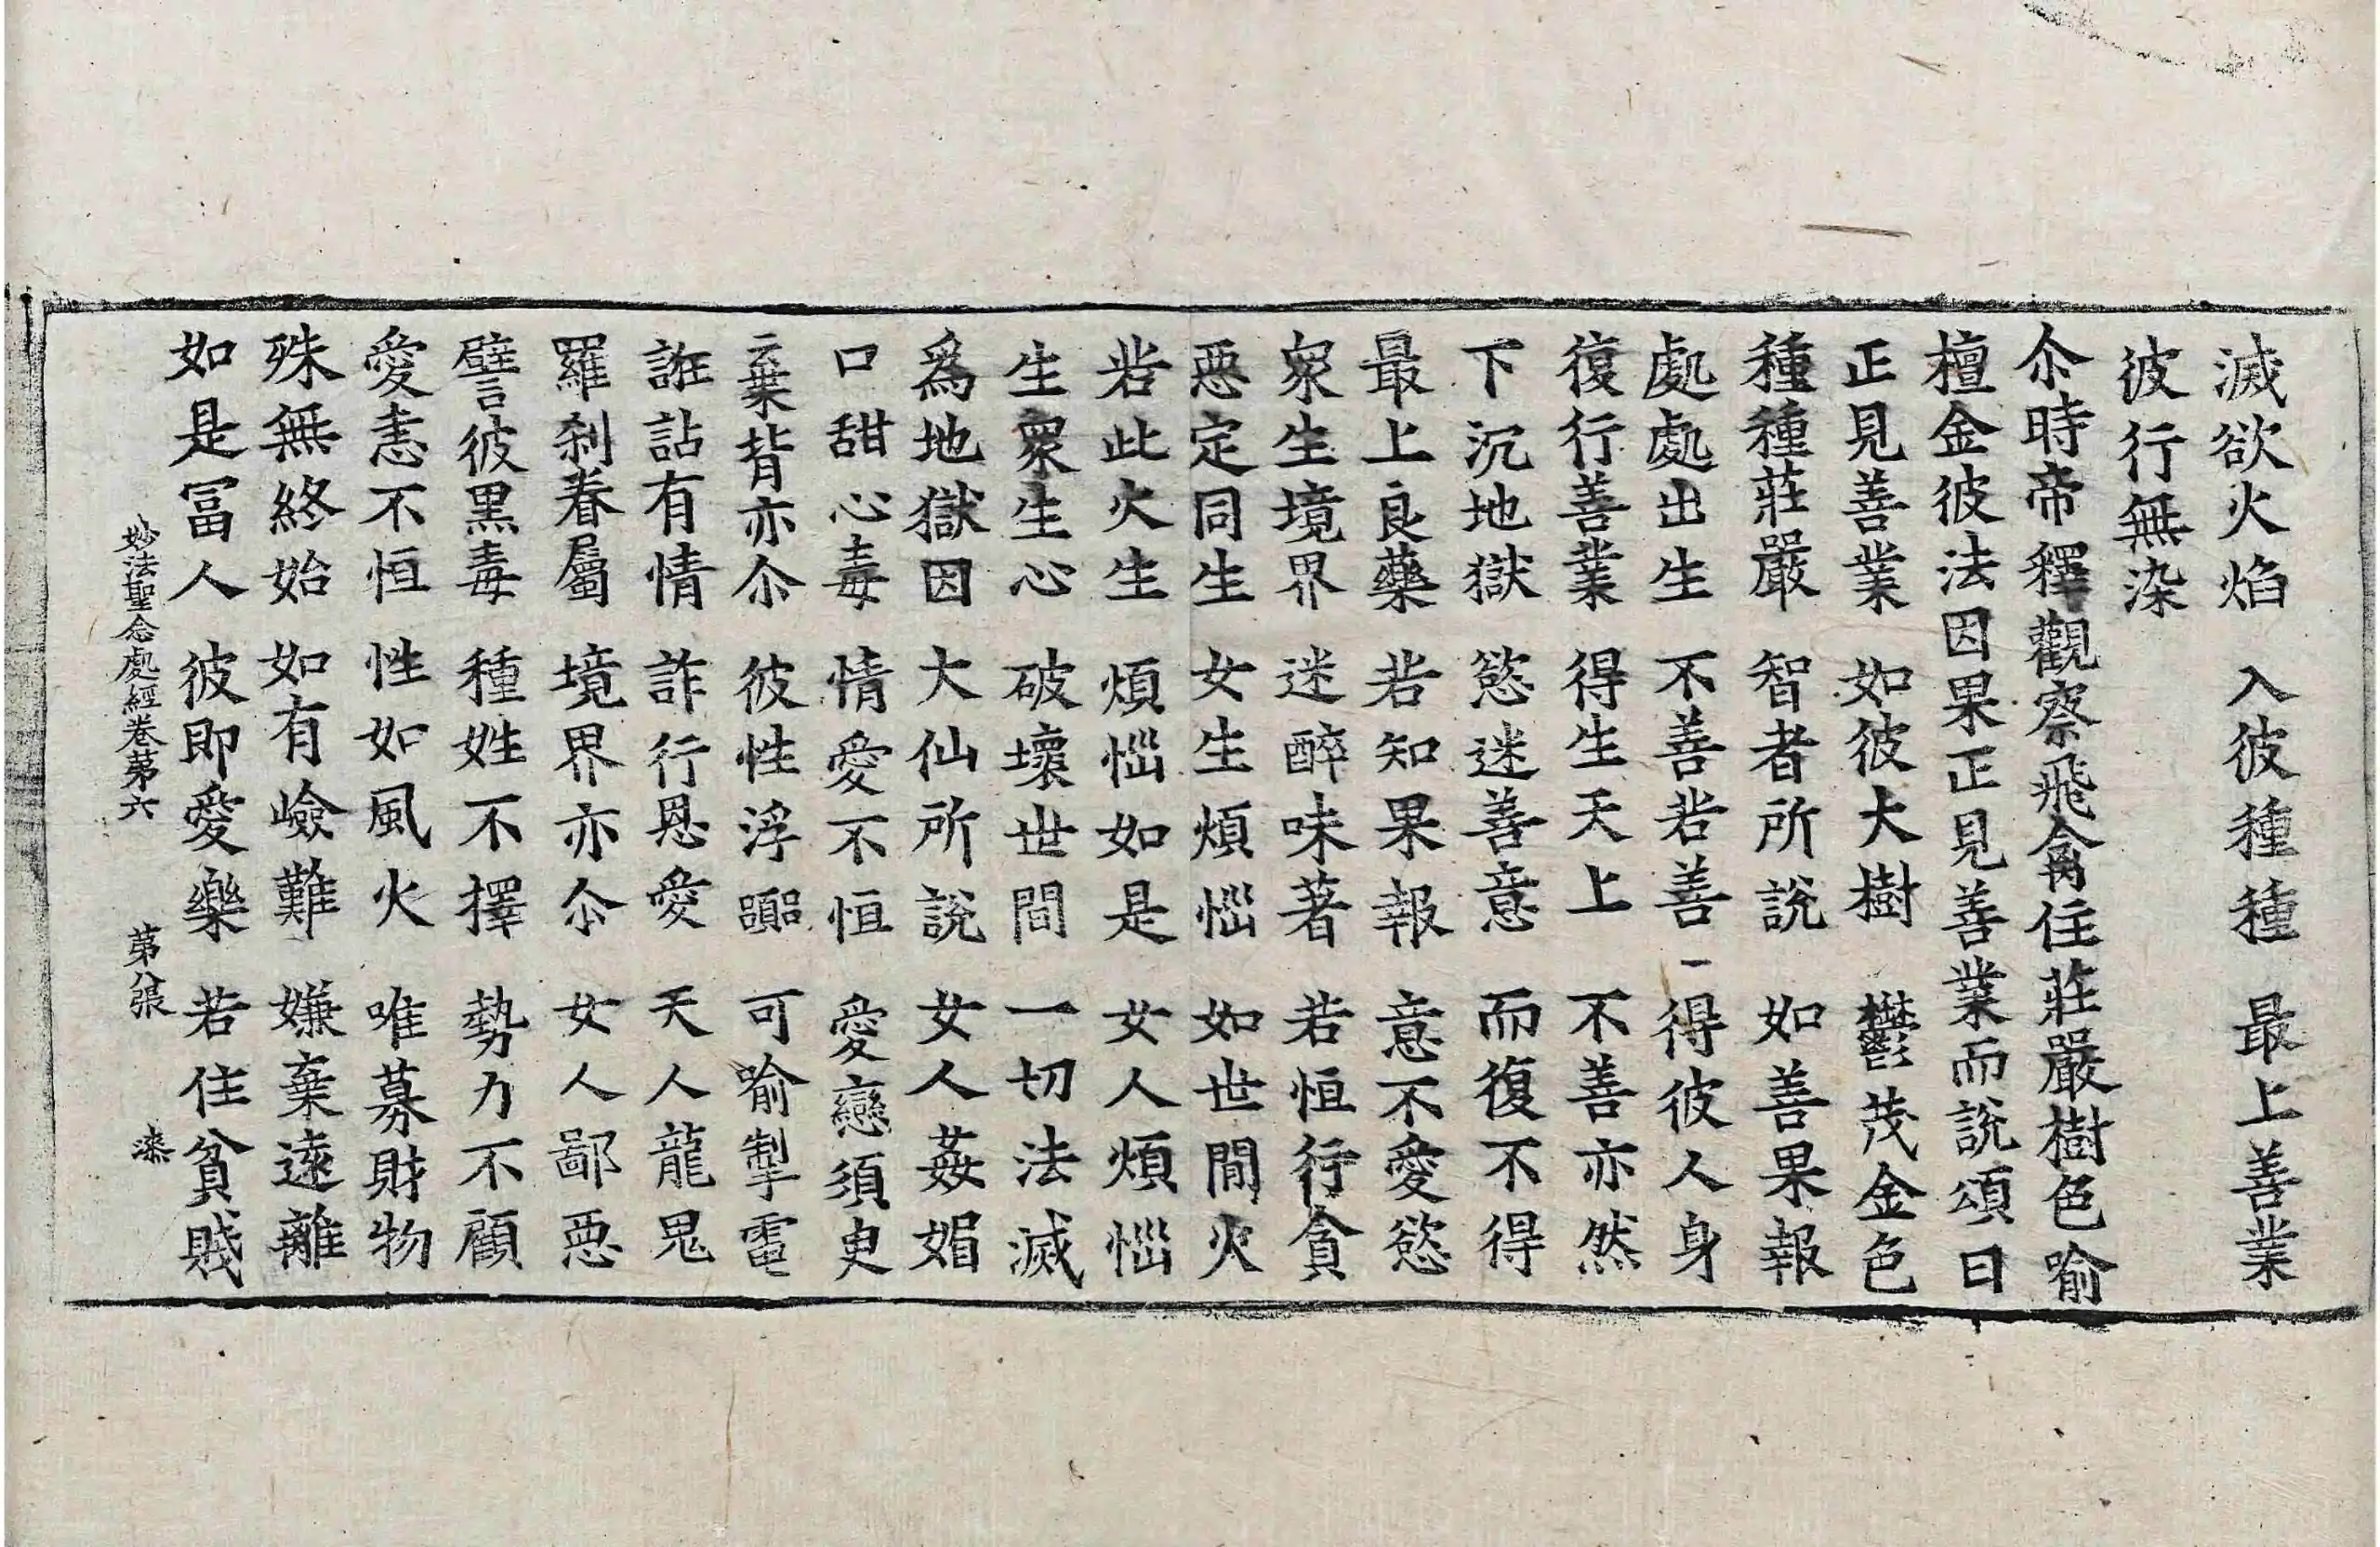 滅欲火焰　入彼種種　最上善業
彼行無染
尒時帝釋觀察飛禽住莊嚴樹色喻
檀金彼法因果正見善業而說頌曰
正見善業　如彼大樹　鬱茂金色
種種莊嚴　智者所說　如善果報
處處出生　不善若善　得彼人身
復行善業　得生天上　不善亦然
下沉地獄　慾迷善意　而復不得
最上良藥　若知果報　意不愛慾
衆生境界　迷醉味著　若恒行貪
惡定同生　女生煩惱　如世間火
若此火生　煩惱如是　女人煩惱
生衆生心　破壞世間　一切法滅
爲地獄因　大仙所說　女人姦媚
口甜心毒　情愛不恒　愛戀須臾
棄背亦尒　彼性浮囂　可喻掣電
誑詀有情　詐行恩愛　天人龍鬼
羅剎眷屬　境界亦尒　女人鄙惡
譬彼黑毒　種姓不擇　勢力不顧
愛恚不恒　性如風火　唯募財物
殊無終始　如有嶮難　嫌棄遠離
如是冨人　彼即愛樂　若住貧賤
妙法聖念處經卷第六　第八張　漆